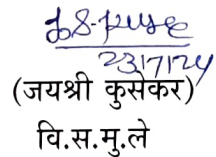 23/7/24
(जयश्री कुसेकर)
वि.स.मु.ले